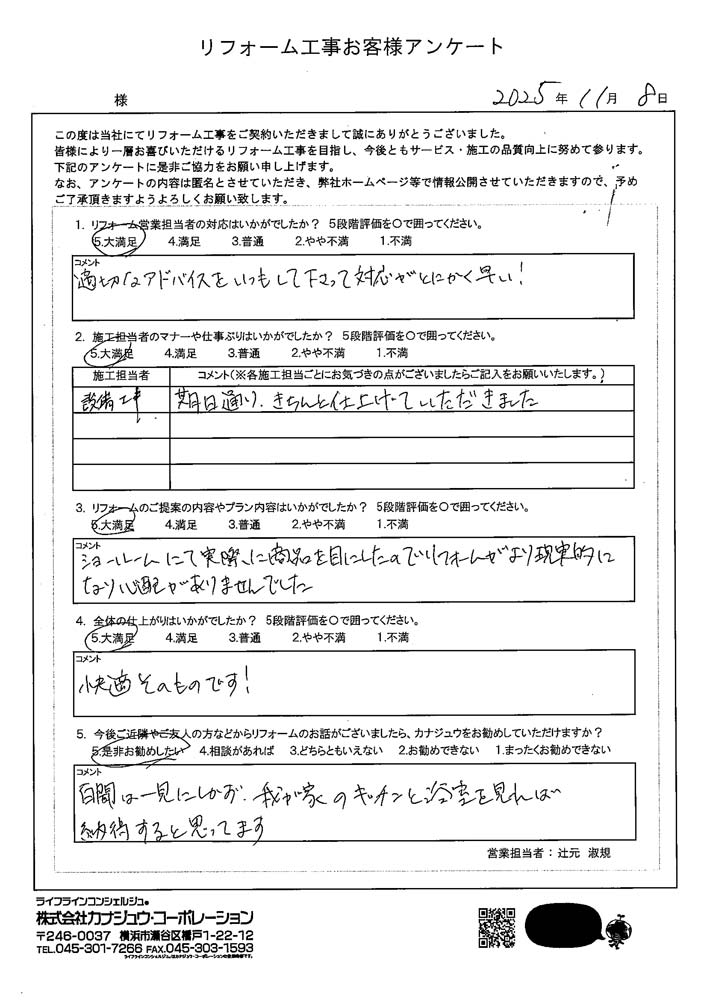 リフォーム工事お客様アンケート
様 2025年 11月 8日
この度は当社にてリフォーム工事をご契約いただきまして誠にありがとうございました。
皆様により一層お喜びいただけるリフォーム工事を目指し、今後ともサービス・施工の品質向上に努めて参ります。
下記のアンケートに是非ご協力をお願い申し上げます。
なお、アンケートの内容は匿名とさせていただき、弊社ホームページ等で情報公開させていただきますので、予め
ご了承頂きますようよろしくお願い致します。
1. リフォーム営業担当者の対応はいかがでしたか? 5段階評価を〇で囲ってください。
5.大満足 4.満足 3.普通 2.やや不満 1.不満
コメント
適切なアドバイスをいつもして下さって対応がとにかく早い!
2. 施工担当者のマナーや仕事ぶりはいかがでしたか? 5段階評価を〇で囲ってください。
5.大満足 4.満足 3.普通 2.やや不満 1.不満
施工担当者 コメント(※各施工担当ごとにお気づきの点がございましたらご記入をお願いいたします。)
設備工事 期日通り、きちんと仕上げていただきました
3. リフォームのご提案の内容やプラン内容はいかがでしたか? 5段階評価を〇で囲ってください。
5.大満足 4.満足 3.普通 2.やや不満 1.不満
コメント
ショールームにて実際に商品を目にしたのでリフォームがより現実的に
なり心配がありませんでした
4. 全体の仕上がりはいかがでしたか? 5段階評価を〇で囲ってください。
5.大満足 4.満足 3.普通 2.やや不満 1.不満
コメント
快適そのものです!
5. 今後ご近隣やご友人の方などからリフォームのお話がございましたら、カナジュウをお勧めしていただけますか?
5.是非お勧めしたい 4.相談があれば 3.どちらともいえない 2.お勧めできない 1.まったくお勧めできない
コメント
百聞は一見にしかず、我が家のキッチンと浴室を見れば
納得すると思ってます
営業担当者:辻元 淑規
ライフラインコンシェルジュ。
株式会社カナジュウ・コーポレーション
〒246-0037 横浜市瀬谷区橋戸1-22-12
TEL.045-301-7266 FAX.045-303-1593
ライフラインコンシェルジュはカナジュウ・コーポレーションの登録商標です。